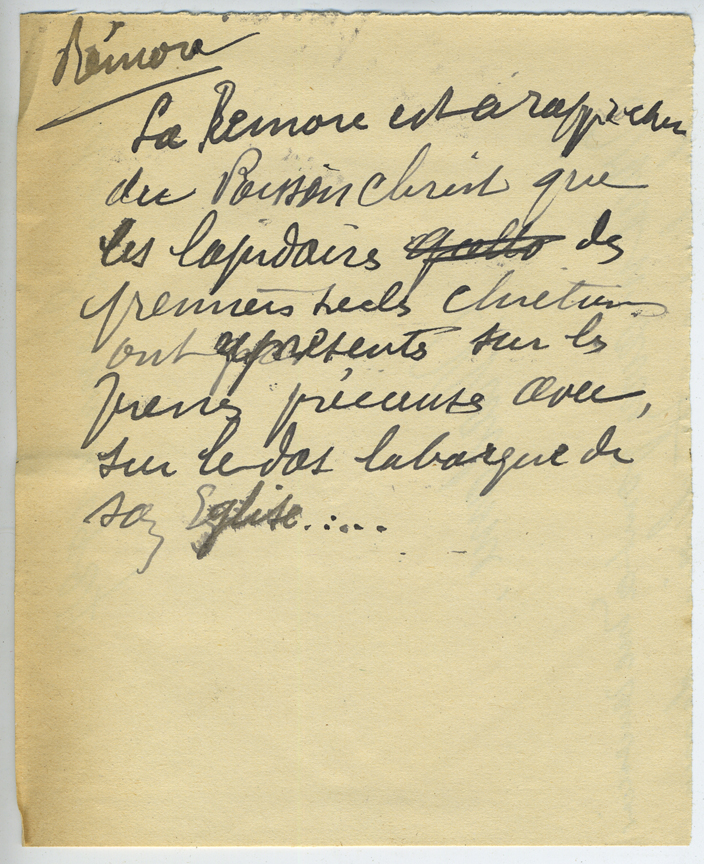 Rémore
La Remore est a rapprocher
du Poisson Christ que
les lapidaires des
premiers siecles chretiens
ont représenté sur les
pierres précieuses avec,
sur le dos la barque de
son Eglise.....